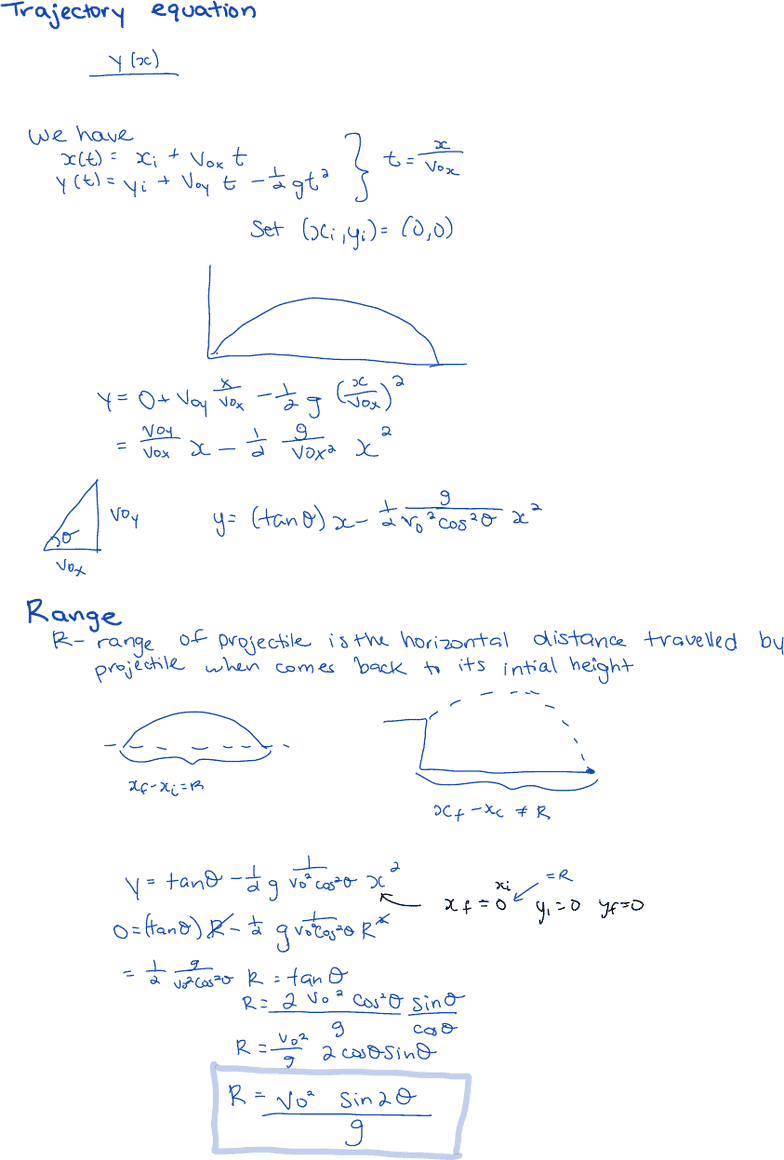 Trajectory equation
y(x)
We have
x(t) = xᵢ + v₀ₓ t
y(t) = yᵢ + v₀y t − ½ gt² } t = x/v₀ₓ
Set (xᵢ, yᵢ) = (0,0)
y = 0 + v₀y x/v₀ₓ − ½ g (x/v₀ₓ)²
= v₀y/v₀ₓ x − ½ g/v₀ₓ² x²
θ v₀y
v₀ₓ
y = (tan θ) x − ½ g/v₀²cos²θ x²
Range
R - range of projectile is the horizontal distance travelled by
projectile when comes back to its intial height
x_f − xᵢ = R
x_f − xᵢ ≠ R
y = tan θ − ½ g 1/v₀²cos²θ x²
xᵢ = R
x_f = 0 yᵢ = 0 y_f = 0
0 = (tan θ) R − ½ g 1/v₀²cos²θ R²
= ½ g/v₀²cos²θ R = tan θ
R = 2 v₀² cos²θ/g sinθ/cosθ
R = v₀²/g 2 cosθ sinθ
R = v₀² sin2θ/g